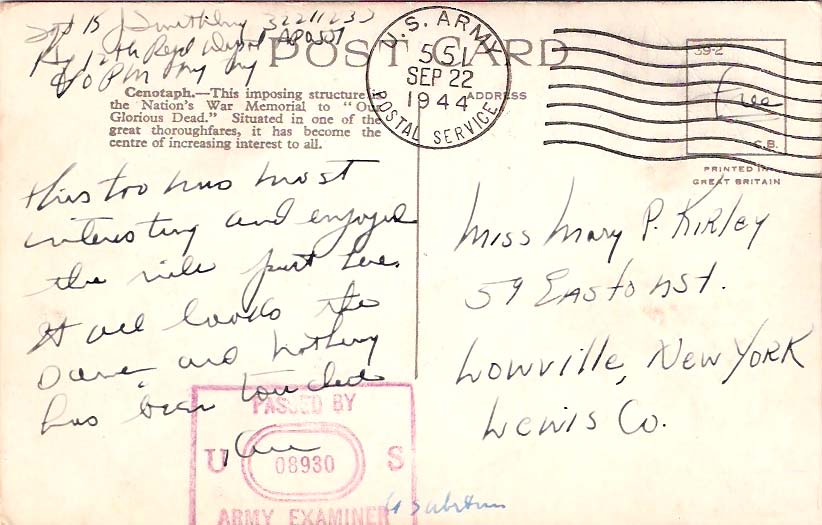 Sgt
32211233
Hq 12th Repl Depot APO 551
c/o PM NY NY
POST CARD
Cenotaph.—This imposing structure
the Nation's War Memorial to "Our
Glorious Dead." Situated in one of the
great thoroughfares, it has become the
centre of increasing interest to all.
U.S. ARMY
551
SEP 22
1944
POSTAL SERVICE
ADDRESS
39-2
Free
C.B.
PRINTED IN
GREAT BRITAIN
this too was most
interesting and enjoyed
the ride past here.
It all looks the
same and nothing
has been touched
Miss Mary P. Kirley
59 Easton St.
Lowville, New York
Lewis Co.
PASSED BY
U 08930 S
ARMY EXAMINER